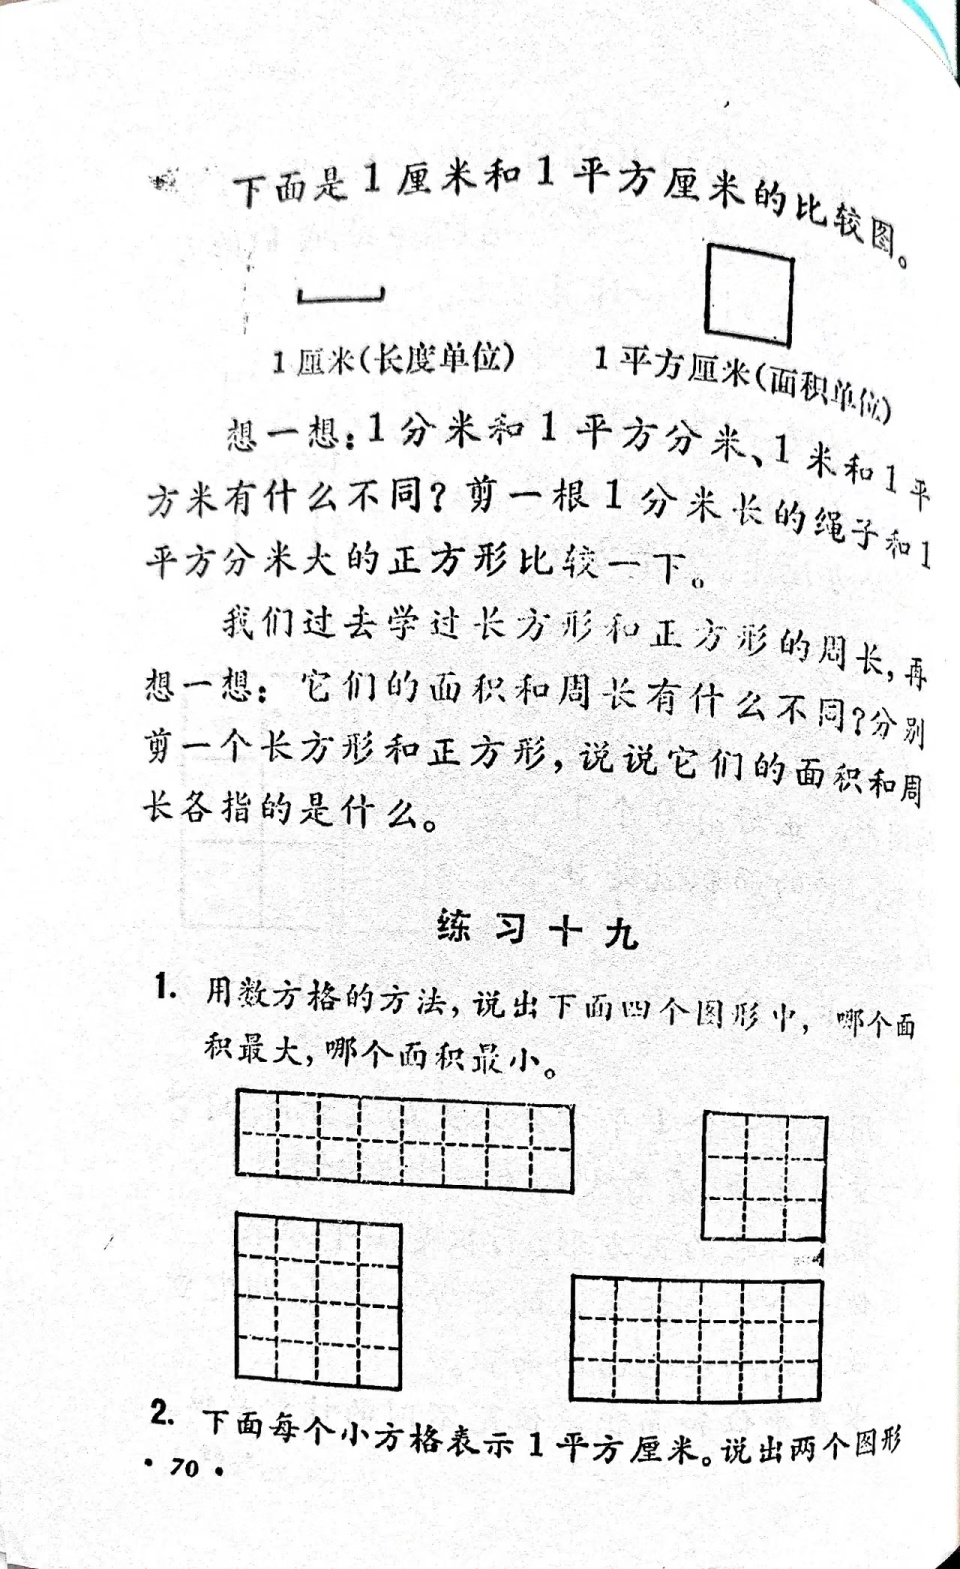 下面是1厘米和1平方厘米的比较图。
1厘米(长度单位)
1平方厘米(面积单位)
想一想:1分米和1平方分米、1米和1平
方米有什么不同?剪一根1分米长的绳子和1
平方分米大的正方形比较一下。
我们过去学过长方形和正方形的周长,再
想一想:它们的面积和周长有什么不同?分别
剪一个长方形和正方形,说说它们的面积和周
长各指的是什么。
练习十九
1. 用数方格的方法,说出下面四个图形中,哪个面
积最大,哪个面积最小。
2. 下面每个小方格表示1平方厘米。说出两个图形
· 70 ·